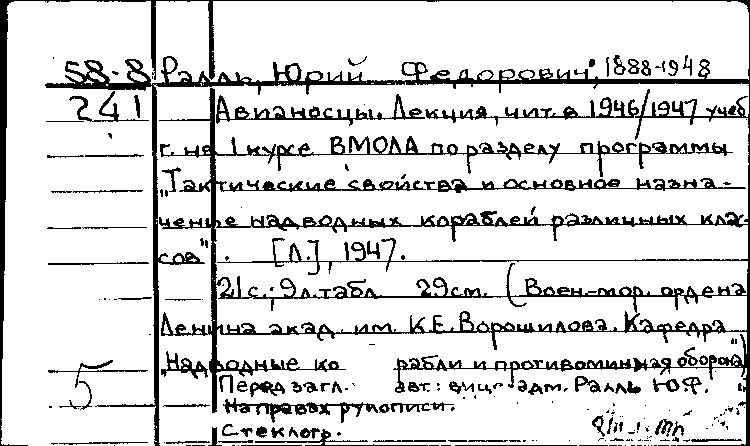 58-8 Ралль, Юрий Федорович, 1888-1948
241 Авианосцы. Лекция, чит. в 1946/1947 учеб.
г. на 1 курсе ВМОЛА по разделу программы
"Тактические свойства и основное назна-
чение надводных кораблей различных клас-
сов". [Л.], 1947.
21с.; 9 л. табл. 29см. (Воен.-мор. ордена
Ленина акад. им. К.Е. Ворошилова. Кафедра
"Надводные ко рабли и противоминная оборона")
5 Перед загл. авт.: вице-адм. Ралль Ю.Ф.
На правах рукописи.
Стеклогр.